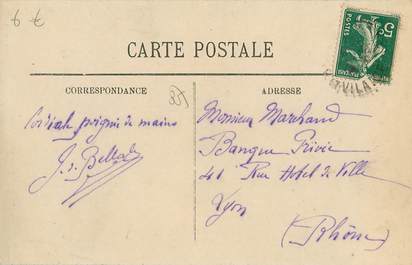 6 €
5c
POSTES
CARTE POSTALE
CORRESPONDANCE
ADRESSE
Cordiale poignée de mains
Monsieur Marchand
Banque Privée
41 Rue Hotel de Ville
Lyon
(Rhône)